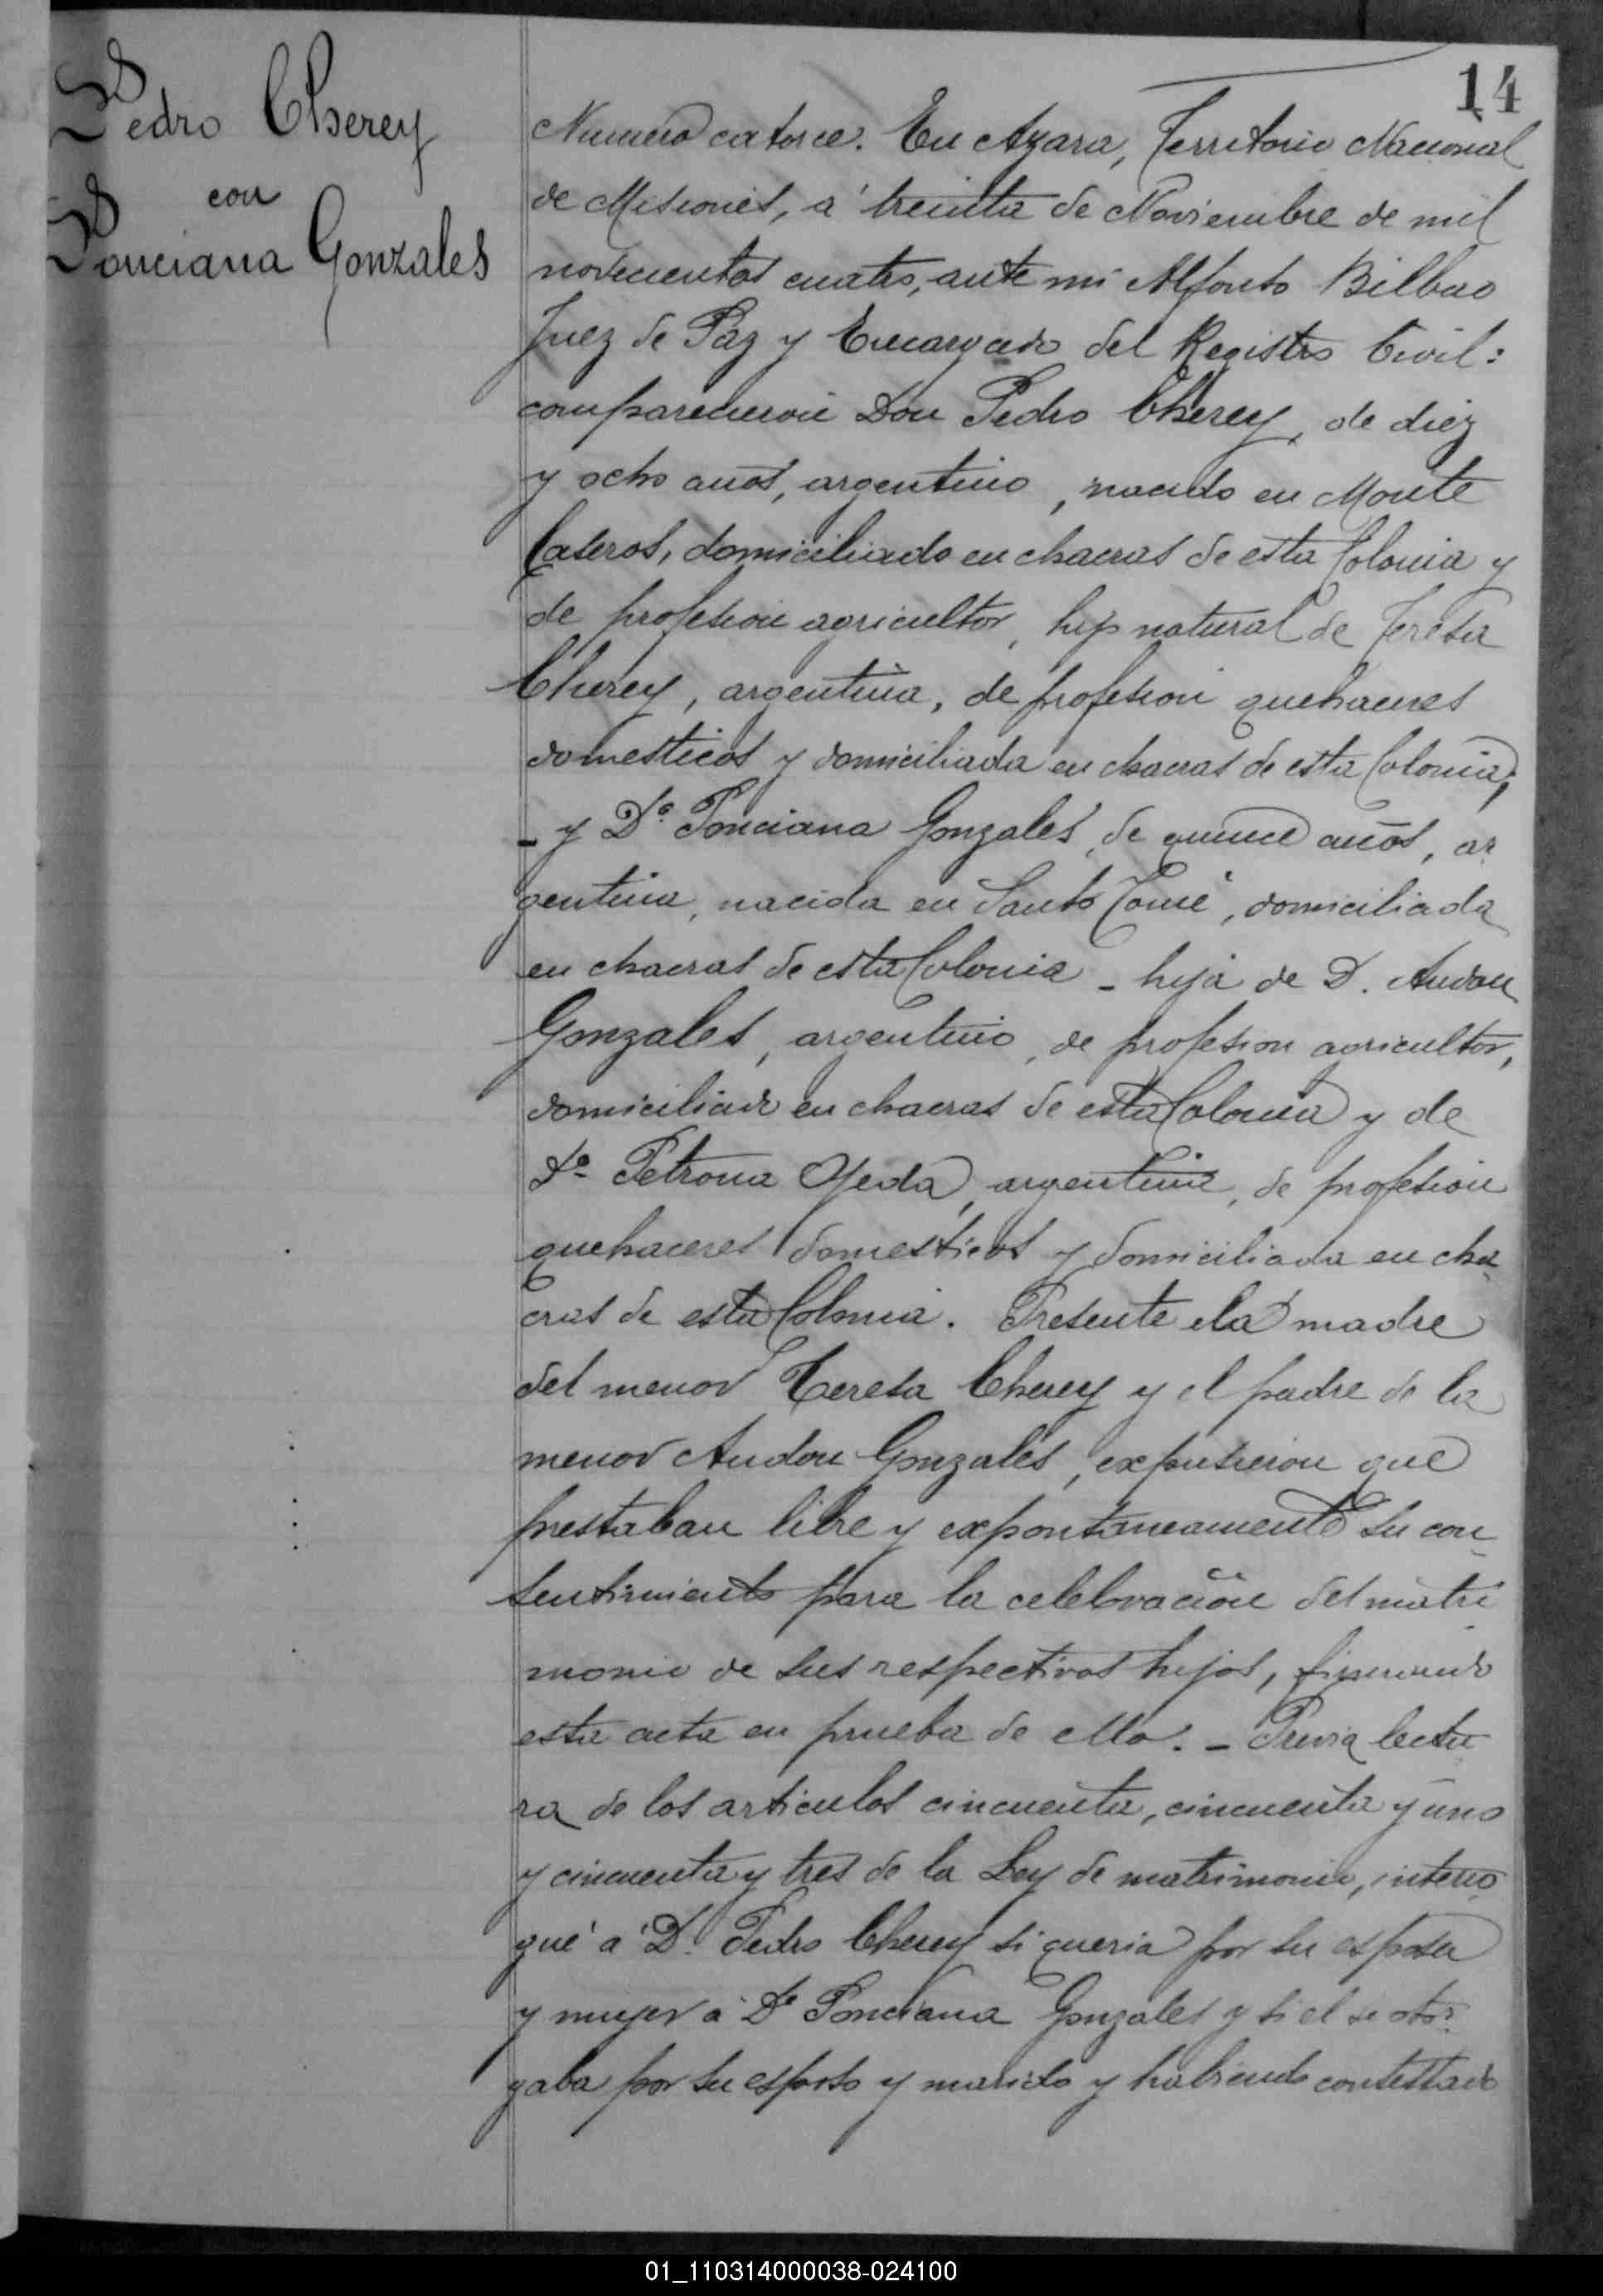 14
Pedro Cherey
con
Ponciana Gonzales
Numero catorce. En Azara, Territorio Nacional
de Misiones, á treinta de Noviembre de mil
novecientos cuatro, ante mi Alfonso Bilbao
Juez de Paz y Encargado del Registro Civil:
comparecieron Don Pedro Cherey, de diez
y ocho años, argentino, nacido en Monte
Caseros, domiciliado en chacras de esta Colonia y
de profesion agricultor, hijo natural de Teresa
Cherey, argentina, de profesion quehaceres
domesticos y domiciliada en chacras de esta Colonia;
- y Dª Ponciana Gonzales, de quince años, ar
gentina, nacida en Santo Tomé, domiciliada
en chacras de esta Colonia - hija de D. Andon
Gonzales, argentino, de profesion agricultor,
domiciliado en chacras de esta Colonia y de
Dª Petrona Ojeda, argentina, de profesion
quehaceres domesticos y domiciliada en cha
cras de esta Colonia. Presente la madre
del menor Teresa Cherey y el padre de la
menor Andon Gonzales, expusieron que
prestaban libre y expontaneamente su con
sentimiento para la celebracion del matri
monio de sus respectivos hijos, firmando
esta acta en prueba de ello. - Previa lectu
ra de los articulos cincuenta, cincuenta y uno
y cincuenta y tres de la Ley de matrimonio, interro
gué á D. Pedro Cherey si queria por su esposa
y mujer á Dª Ponciana Gonzales y si el se otor
gaba por su esposo y marido y habiendo contestado
01_110314000038-024100